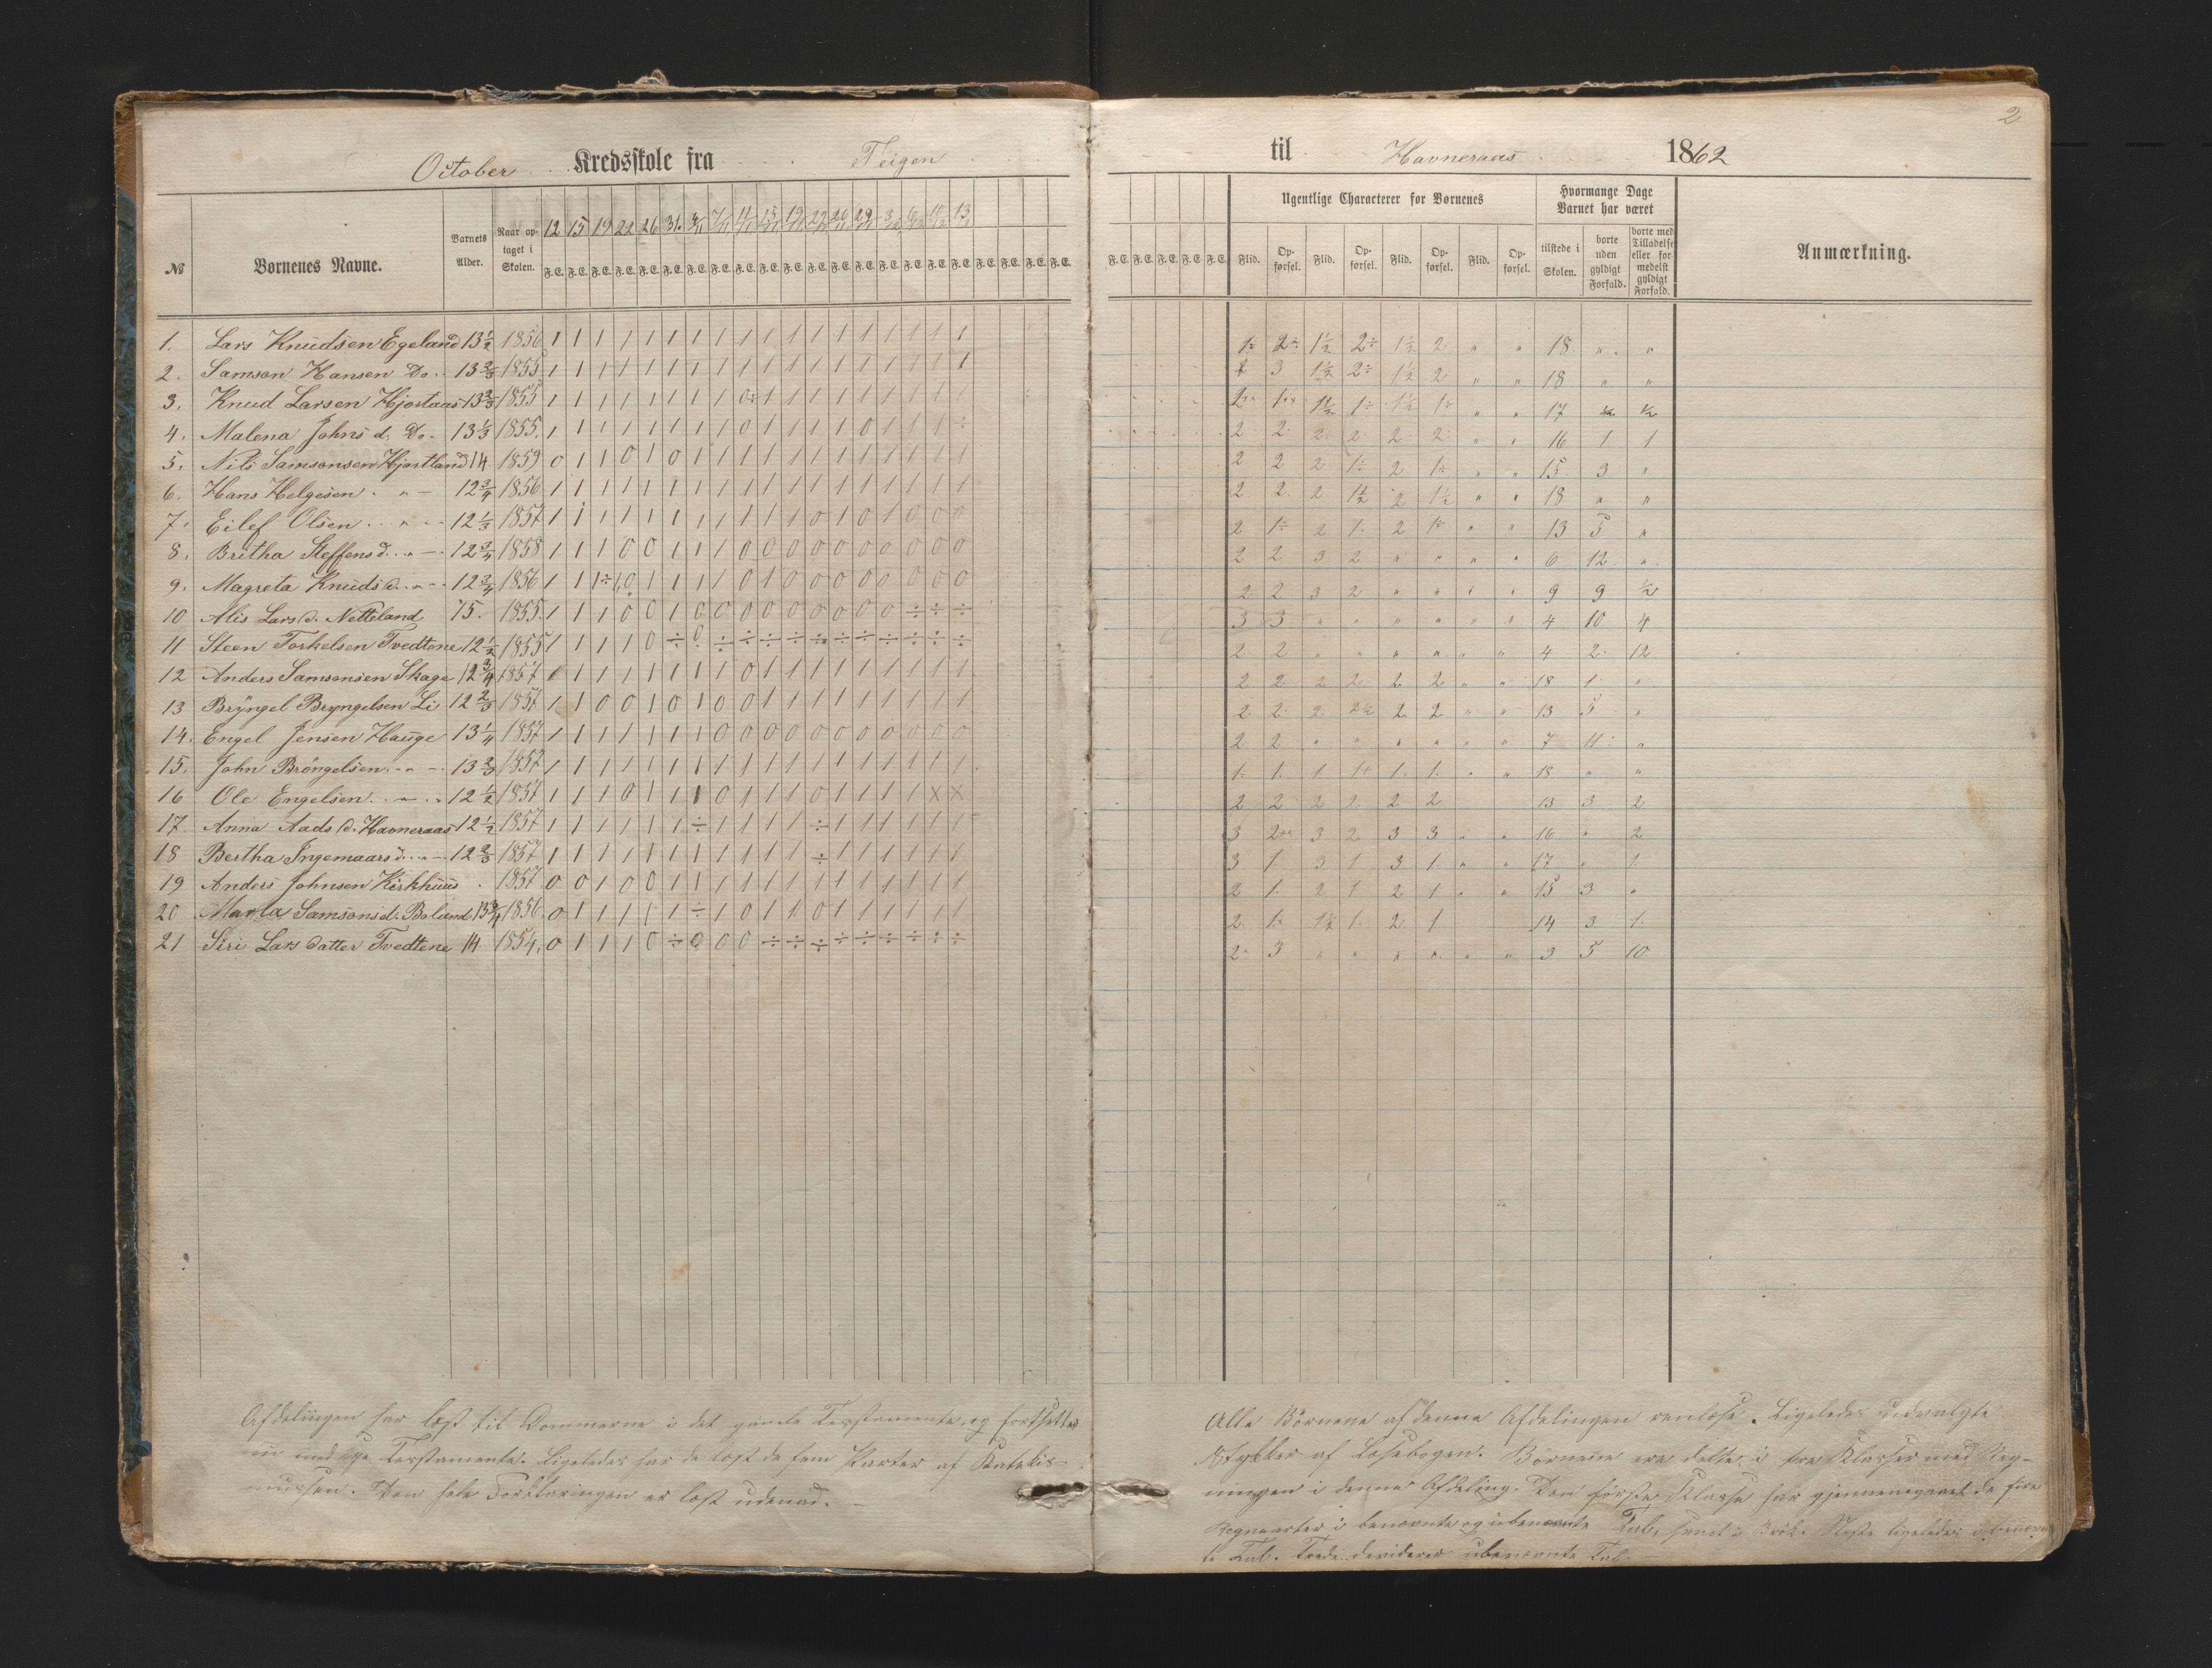 2
October Kredsskole fra Teigen til Havneraas 1862
№ Børnenes Navne. Barnets Alder. Naar optaget i Skolen. 12 15 19 22 26 31. 4/11 7/11 11/11 15/11 19/11 22/11 26/11 29/11 3/12 6/12 10/12 13
Ugentlige Characterer for Børnenes Hvormange Dage Barnet har været Anmærkning.
Flid. Opførsel. Flid. Opførsel. Flid. Opførsel. Flid. Opførsel. tilstede i Skolen. borte uden gyldigt Forfald. borte med Tilladelse eller formedelst gyldigt Forfald.
F.E. F.E. F.E. F.E. F.E. F.E. F.E. F.E. F.E. F.E. F.E. F.E. F.E. F.E. F.E. F.E. F.E. F.E. F.E. F.E. F.E. F.E. F.E. F.E. F.E. F.E. F.E.
1. Lars Knudsen Egeland 13½ 1856 1 1 1 1 1 1 1 1 1 1 1 1 1 1 1 1 1 1 1÷ 2÷ 1½ 2÷ 1½ 2 " " 18 " "
2. Samson Hansen Do. 13⅔ 1855 1 1 1 1 1 1 1 1 1 1 1 1 1 1 1 1 1 1 2 3 1½ 2÷ 1½ 2 " " 18 " "
3. Knud Larsen Hjortaas 13⅔ 1855 1 1 1 1 1 1 1 1 0÷ 1 1 1 1 1 1 1 1 1 17 ½ ½
4. Malena Johns d. Do. 13⅓ 1855. 1 1 1 1 1 1 1 1 0 1 1 1 1 0 1 1 1 ÷ 2 2 2 2 2 2 " " 16 1 1
5. Nils Samsonsen Hjortland 14. 1859 0 1 1 0 1 0 1 1 1 1 1 1 1 1 1 1 1 1 2 2 2 1÷ 2 1÷ " " 15 3 "
6. Hans Helgesen " 12¾ 1856 1 1 1 1 1 1 1 1 1 1 1 1 1 1 1 1 1 1 2 2 2 1½ 2 1½ " " 18 " "
7. Eilef Olsen " 12⅓ 1857 1 1 1 1 1 1 1 1 1 1 1 0 1 0 1 0 0 0 2 1÷ 2 1. 2 1÷ " " 13 5 "
8. Britha Steffensd. " 12¾ 1858 1 1 1 0 0 1 1 1 0 0 0 0 0 0 0 0 0 0 2 2 3 2 " " " " 6 12 "
9. Magreta Knudsd. " 12¾ 1856 1 1 1÷ 1,0 1 1 1 1 0 1 0 0 0 0 0 0 0 0 2 2 3 2 " " " " 9 9 ½
10 Alis Larsd. Netteland 15. 1855. 1 1 1 0 0 1 0 0 0 0 0 0 0 0 0 ÷ ÷ ÷ 3 3 " " " " " " 4 10 4
11 Steen Torkelsen Tvedtene 12½ 1855 1 1 1 1 0 ÷ 0 ÷ ÷ ÷ ÷ ÷ ÷ ÷ ÷ ÷ ÷ ÷ 2 2 " " " " " " 4 2 12
12 Anders Samsonsen Skage 12¾ 1857 1 1 1 1 1 1 1 0 1 1 1 1 1 1 1 1 1 2 2 2 2 2 2 " " 18 1 "
13 Brÿngel Bryngelsen Li 12⅔ 1857 1 1 0 0 1 0 1 0 0 1 1 1 1 1 1 1 1 1 2 2 2 2½ 2 2 " " 13 5 "
14. Engel Jensen Hauge 13¼ 1857 1 1 1 1 1 1 1 0 0 0 0 0 0 0 0 0 0 0 2 2 " " " " " " 7 11 "
15. John Bröngelsen " 13⅔ 1857 1 1 1 1 1 1 1 1 1 1 1 1 1 1 1 1 1 1 1÷ 1. 1 1+ 1. 1. " " 18 " "
16 Ole Engelsen " 12½ 1857 1 1 1 0 1 1 1 0 1 1 1 0 1 1 1 1 X X 2 2 2 2 2 2 13 3 2
17. Anna Aads d. Havneraas 12½ 1857 1 1 1 1 1 1 ÷ 1 1 1 1 ÷ 1 1 1 1 1 1 3 2 3 2 3 3 " " 16 " 2
18 Bertha Ingemaarsd. " 12⅔ 1857 1 1 1 1 1 1 1 1 1 1 1 ÷ 1 1 1 1 1 1 3 1. 3 1 3 1. " " 17 " 1
19 Anders Johnsen Kirkhuus . 1857 0 0 1 0 0 1 1 1 1 1 1 1 1 1 1 1 1 1 2 1. 2 1 2 1 " " 15 3 "
20 Marta Samsonsd. Boland 13¾ 1856. 0 1 1 1 1 1 ÷ 1 0 1 1 0 1 1 1 1 1 1 2 1÷ 1½ 1. 2 1 14 3 1.
21 Siri Lars datter Tvedtene 14 1854. 0 1 1 1 0 ÷ 0 0 0 ÷ ÷ ÷ ÷ ÷ ÷ ÷ ÷ ÷ 2÷ 3 " " " " " " 3 5 10
Afdelingen har læst til Dommerne i det gamle Testamente, og fortsetter
nu med nye Testamente. Ligeledes har de læst de fem Parter af Katekis-
mussen. Den hele Forklaringen er læst udenad. —
Alle Börnene af denne Afdelingen renlæse. Ligeledes udvalgte
Stykker af Læsebogen. Börnene ere delte i tre Klasser med Reg-
ningen i denne Afdeling. Den förste Klasse har gjennemgaaet de fire
Regnearter i benævnte og ubenævnte Tal, samt i Brök. Næste ligeledes i benævn-
te Tal. Tredie dividerer ubenævnte Tal. —